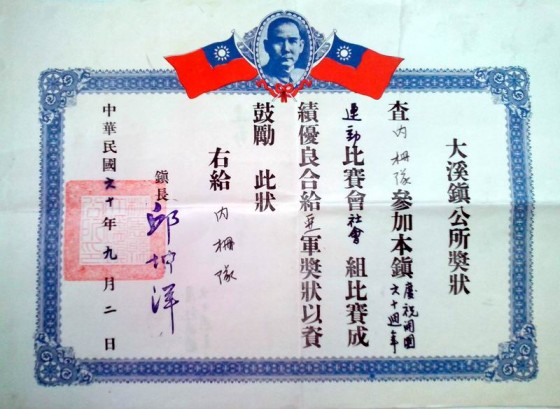 大溪鎮公所獎狀
查內柵隊參加本鎮慶祝開國六十週年
運動比賽會社會組比賽成
績優良合給亞軍獎狀以資
鼓勵 此狀
右給 內柵隊
鎮長 邱坤洋
中華民國六十年九月二日